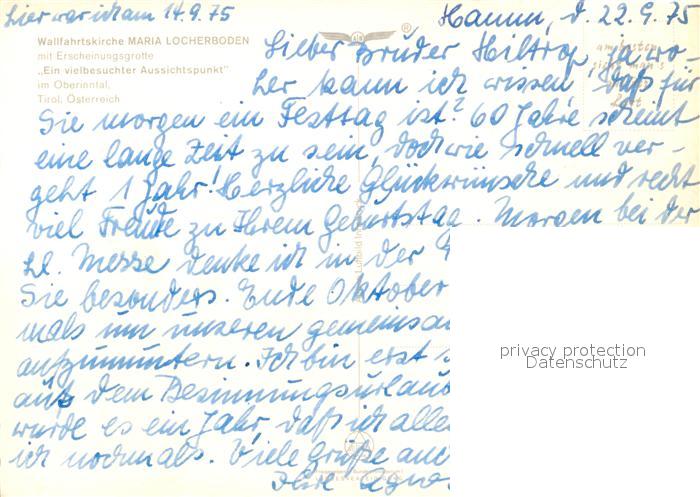 Hier war ich am 14.9.75
Hamm, d. 22.9.75
Wallfahrtskirche MARIA LOCHERBODEN
mit Erscheinungsgrotte
„Ein vielbesuchter Aussichtspunkt"
im Oberinntal,
Tirol, Österreich
Lieber Bruder Hiltrop, ja wo-
her kann ich wissen, daß für
Sie morgen ein Festtag ist? 60 Jahre scheint
eine lange Zeit zu sein, doch wie schnell ver-
geht 1 Jahr! Herzliche Glückwünsche und recht
viel Freude zu Ihrem Geburtstag. Morgen bei der
hl. Messe denke ich in der
Sie besonders. Ende Oktober
mals um unseren gemeinsa
aufzumuntern. Ich bin erst
aus dem Besinnungsurlaub
wurde es ein Jahr, daß ich alle
ich nochmals. Viele Grüße auc
Ihre
privacy protection
Datenschutz